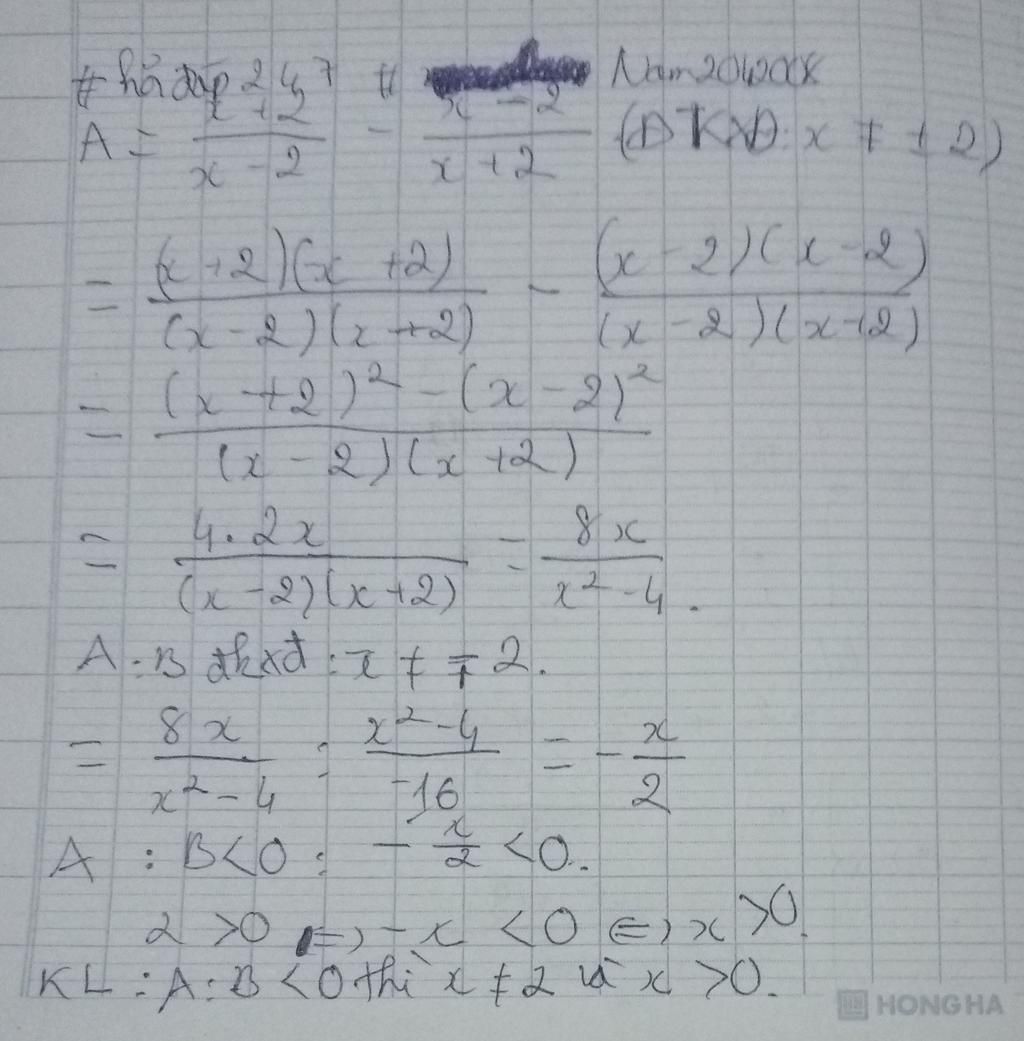 # hỏi đáp 247 # Nam2042008
A = \frac{x+2}{x-2} - \frac{x-2}{x+2} (ĐKXĐ: x ≠ ±2)
= \frac{(x+2)(x+2)}{(x-2)(x+2)} - \frac{(x-2)(x-2)}{(x-2)(x+2)}
= \frac{(x+2)^2 - (x-2)^2}{(x-2)(x+2)}
= \frac{4.2x}{(x-2)(x+2)} = \frac{8x}{x^2-4}.
A:B đkxđ: x ≠ ∓2.
= \frac{8x}{x^2-4} : \frac{x^2-4}{-16} = -\frac{x}{2}
A : B<0 : -\frac{x}{2} <0.
2 >0 <=> -x < 0 <=> x >0.
KL : A:B <0 thì x ≠ 2 và x >0.
HONG HA